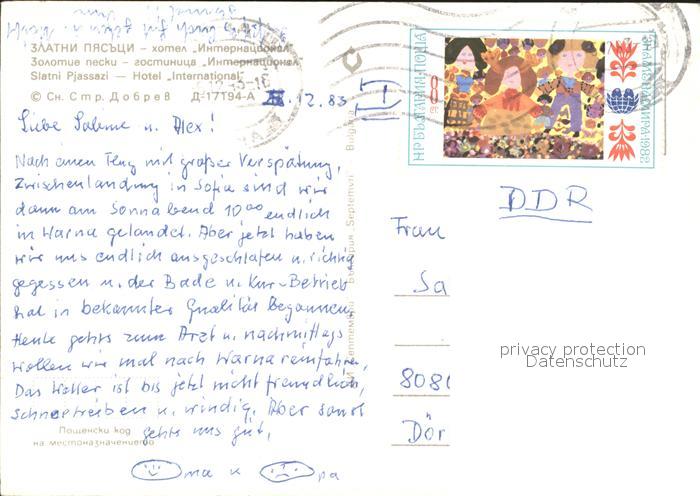 ЗЛАТНИ ПЯСЪЦИ – хотел „Интернационал"
Золотие пески – гостиница „Интернационал"
Slatni Pjassazi – Hotel „International"
© Сн. Стр. Добрев Д-17194-А
.12.83
II
Liebe Sabine u. Alex!
Nach einem Flug mit großer Verspätung,
Zwischenlandung in Sofia sind wir
dann am Sonnabend 10⁰⁰ endlich
in Warna gelandet. Aber jetzt haben
wir uns endlich ausgeschlafen u. richtig
gegessen u. der Bade u. Kur-Betrieb
hat in bekannter Qualität begonnen.
Heute gehts zum Arzt u. nachmittags
wollen wir mal nach Warna reinfahren.
Das Wetter ist bis jetzt nicht freundlich,
Schneetreiben u. windig. Aber sonst
gehts uns gut.
Oma u Opa
Пощенски код
на местоназначението
България Septemvri Bulgaria
НР БЪЛГАРИЯ · ПОЩА
8
ЗНАМЕ НА МИРА · 1982
DDR
Frau
Sa
8080
Dör
privacy protection
Datenschutz